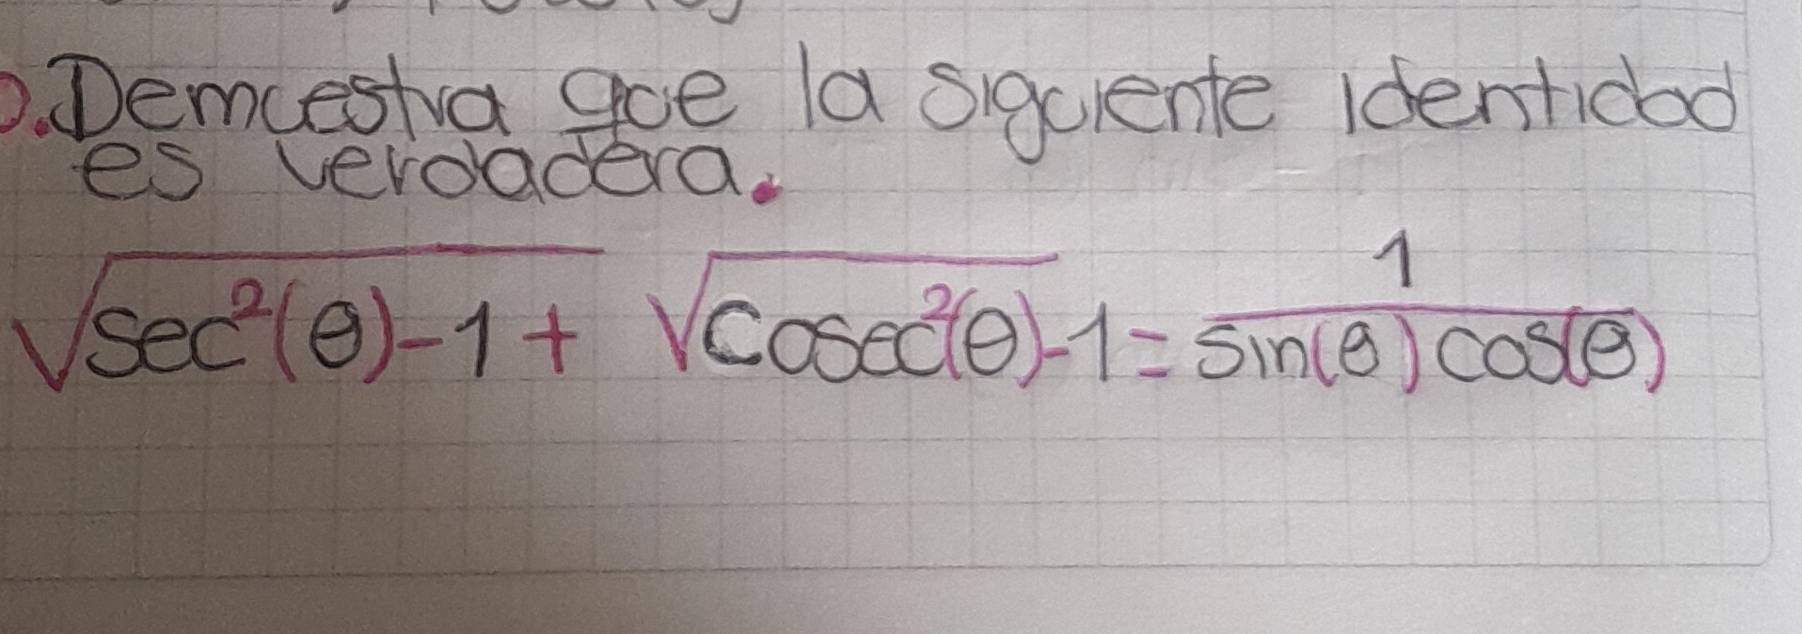 Demuestra que la siguiente identidad
es verdadera.
√sec²(θ)-1 + √cosec²(θ)-1 = 1/sin(θ)cos(θ)